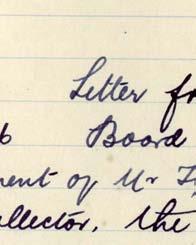 Letter fr
6 Board
ment of Mr
llector, the